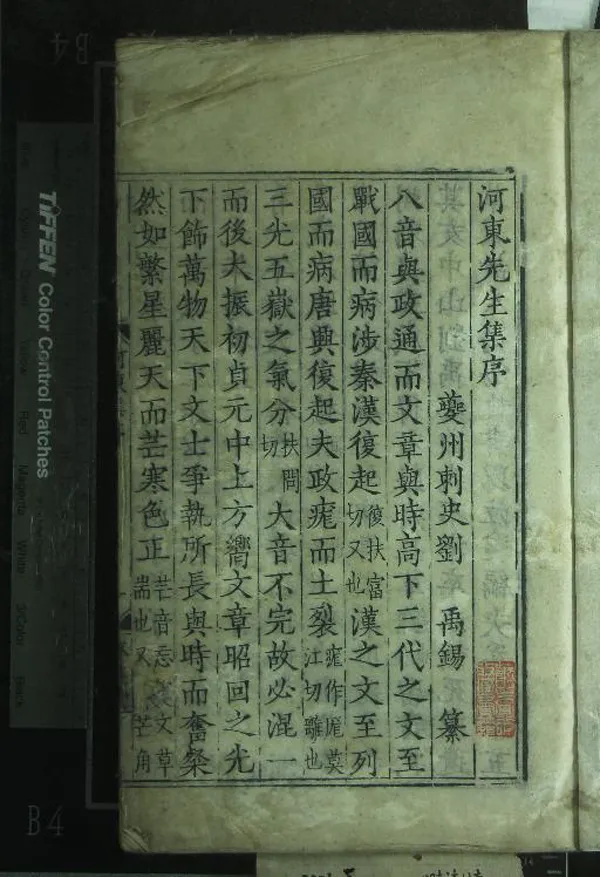 河東先生集序
夔州刺史劉 禹錫 纂
八音與政通而文章與時高下三代之文至
戰國而病涉秦漢復起復扶富切又也漢之文至列
國而病唐興復起夫政痝而土裂痝作厖莫江切雜也
三光五嶽之氣分扶問切大音不完故必混一
而後大振初貞元中上方嚮文章昭回之光
下飾萬物天下文士爭執所長與時而奮粲
然如繁星麗天而芒寒色正芒音忘文草耑也又芒角
TIFFEN Color Control Patches
Red
Magenta
White
3/Color
Black
B4
B4